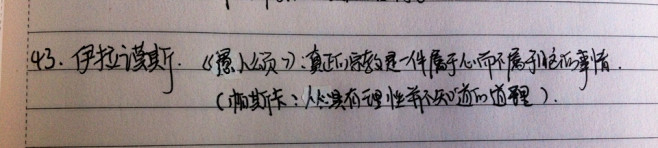 43. 伊拉谟斯. 《愚人颂》:真正的宗教是一件属于心而不属于脑的事情.
(帕斯卡:人心具有理性并不知道的道理).